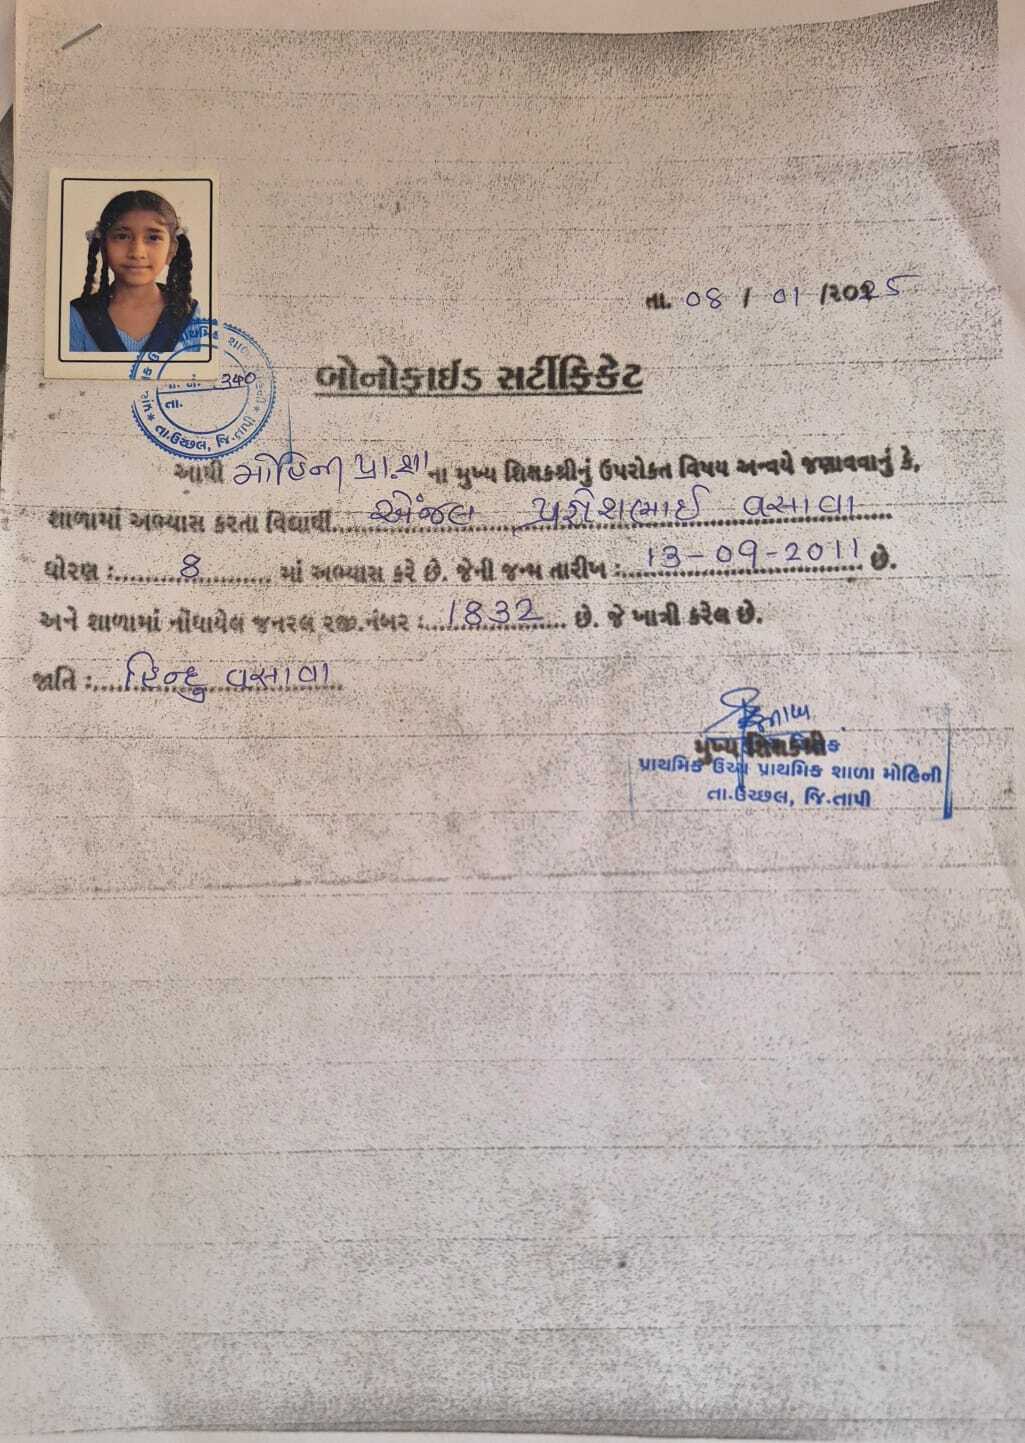 તા. ૦૪ / ૦૧ /૨૦૨૫
૨૩૦
તા.
તા.ઉચ્છલ, જિ.તાપી
બોનોફાઈડ સર્ટીફિકેટ
આથી મોહિની પ્રા.શા ના મુખ્ય શિક્ષકશ્રીનું ઉપરોક્ત વિષય અન્વયે જણાવવાનું કે,
શાળામાં અભ્યાસ કરતા વિદ્યાર્થી. એંજલ પ્રજ્ઞેશભાઈ વસાવા
ધોરણ : 8 માં અભ્યાસ કરે છે. જેની જન્મ તારીખ : 13-09-2011 છે.
અને શાળામાં નોંધાયેલ જનરલ રજી.નંબર : 1832 છે. જે ખાત્રી કરેલ છે.
જાતિ : હિન્દુ વસાવા
મુખ્ય શિક્ષકશ્રી
પ્રાથમિક ઉચ્ચ પ્રાથમિક શાળા મોહિની
તા.ઉચ્છલ, જિ.તાપી